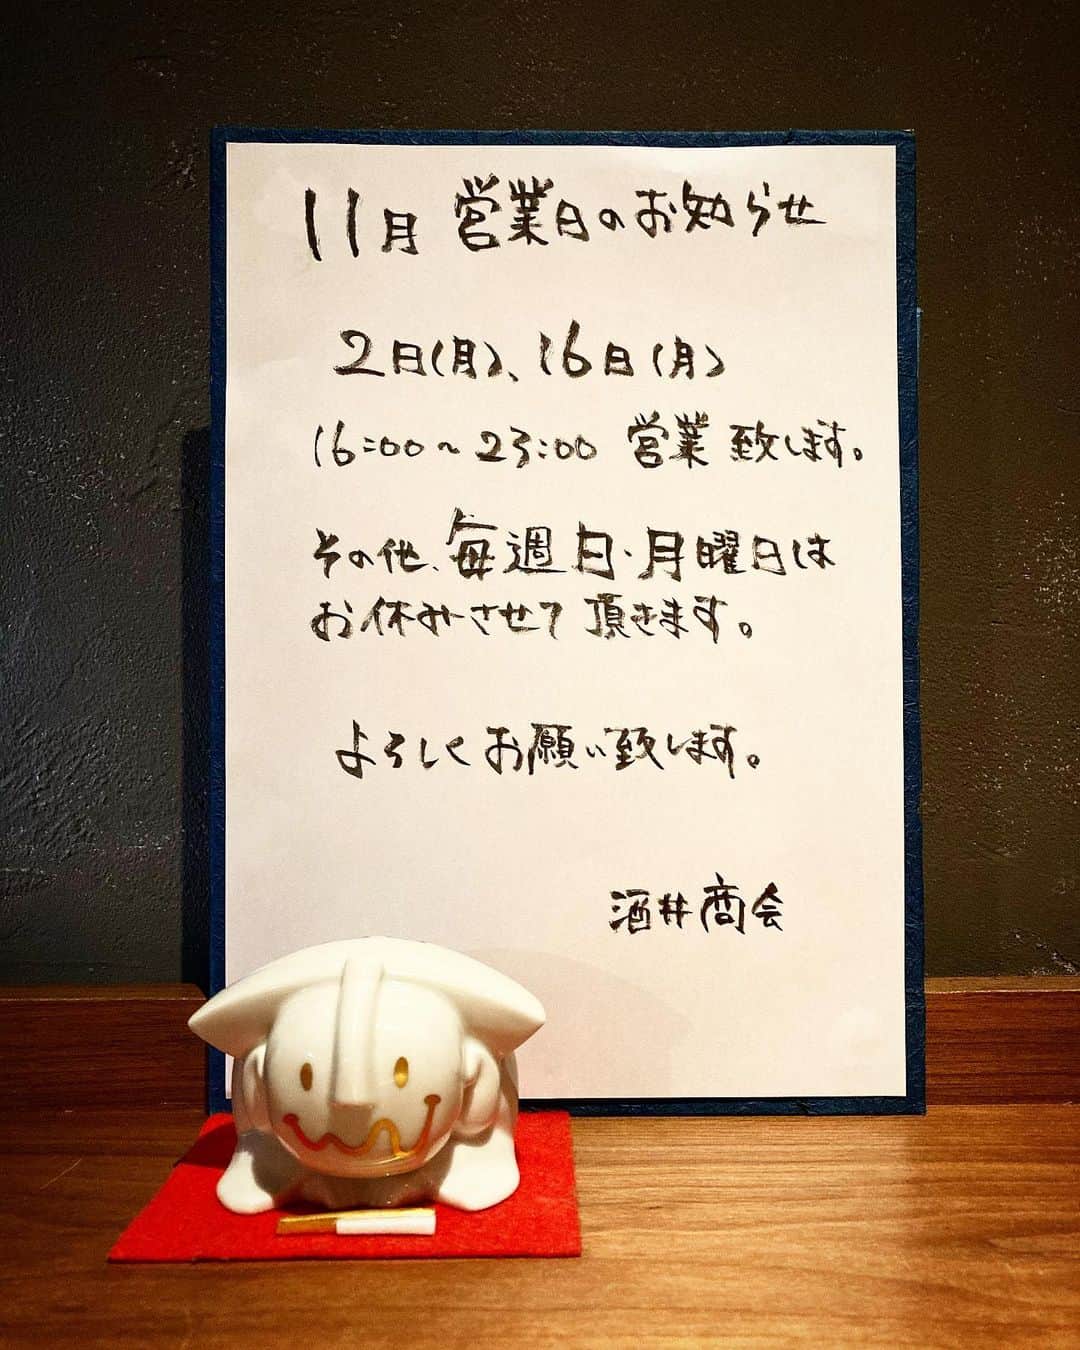 11月 営業日のお知らせ
2日(月)、16日(月)
16:00〜23:00 営業致します。
その他、毎週日・月曜日は
お休みさせて頂きます。
よろしくお願い致します。
酒井商会